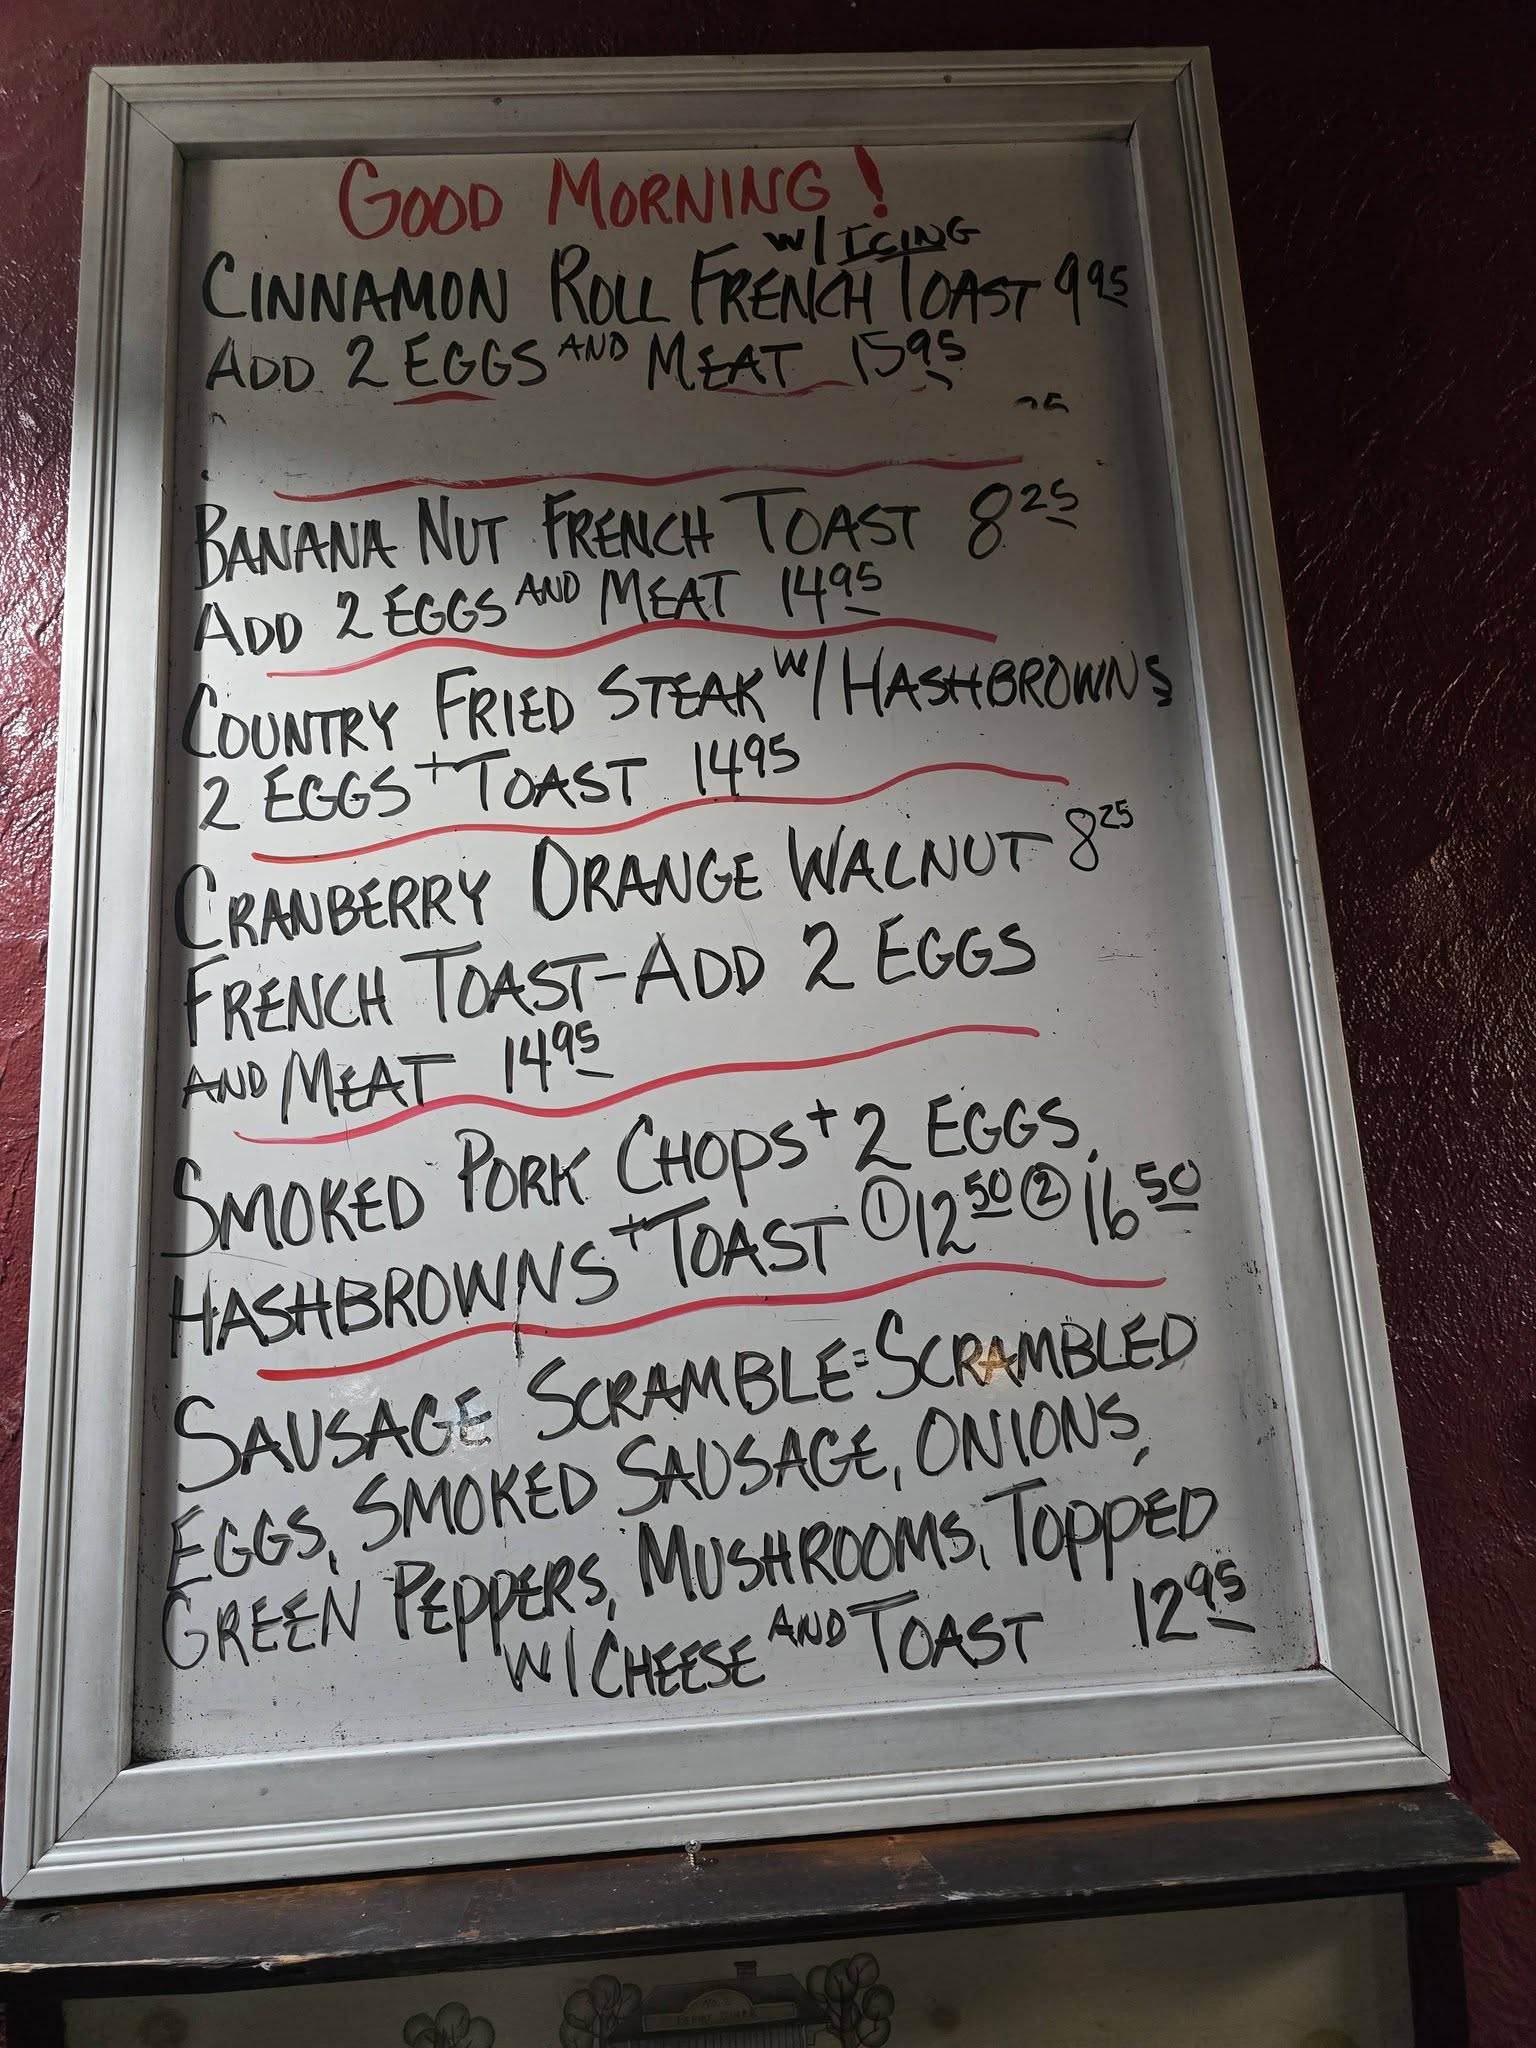 GOOD MORNING!
W/ ICING
CINNAMON ROLL FRENCH TOAST 9 95
ADD 2 EGGS AND MEAT 15 95
BANANA NUT FRENCH TOAST 8 25
ADD 2 EGGS AND MEAT 14 95
COUNTRY FRIED STEAK W/ HASHBROWNS
2 EGGS + TOAST 14 95
CRANBERRY ORANGE WALNUT 8 25
FRENCH TOAST-ADD 2 EGGS
AND MEAT 14 95
SMOKED PORK CHOPS + 2 EGGS,
HASHBROWNS + TOAST ① 12 50 ② 16 50
SAUSAGE SCRAMBLE=SCRAMBLED
EGGS, SMOKED SAUSAGE, ONIONS,
GREEN PEPPERS, MUSHROOMS, TOPPED
W/ CHEESE AND TOAST 12 95